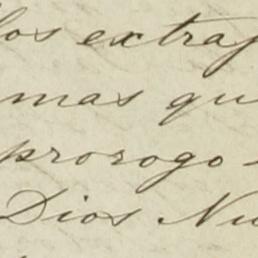 los extraj
mas qu
prorogo
Dios Nu